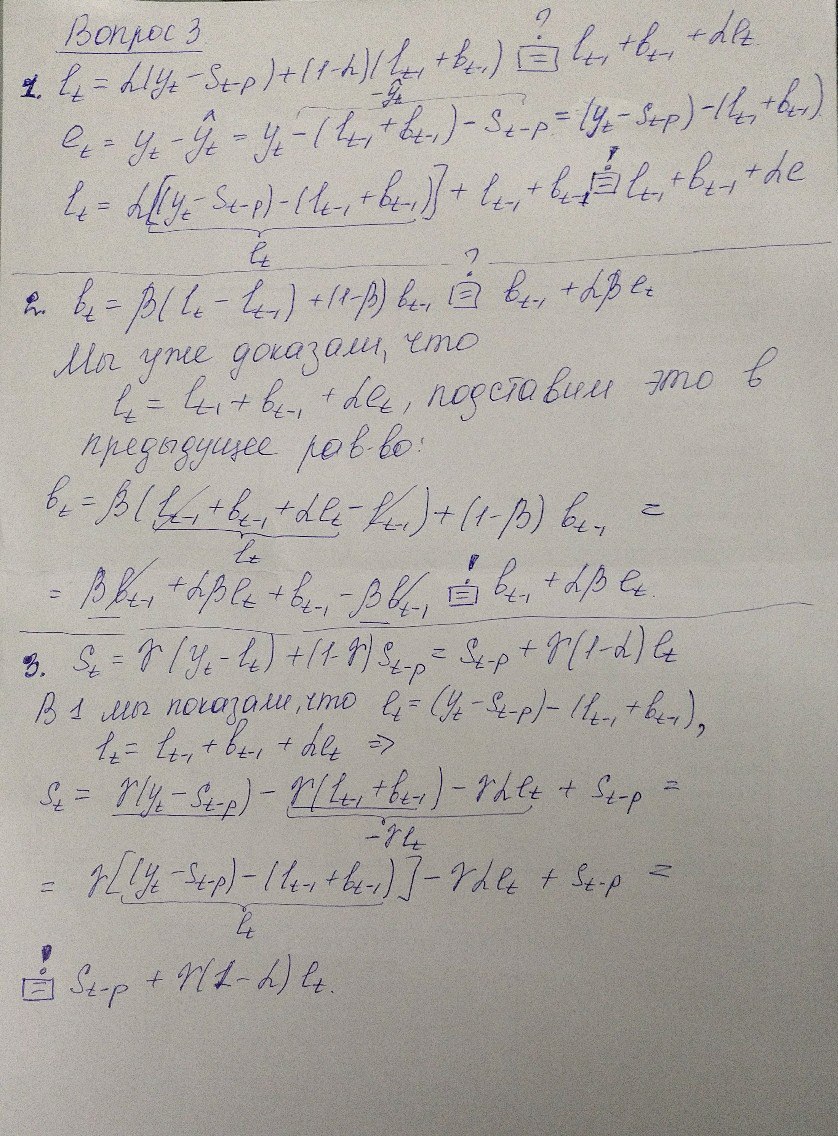 Вопрос 3
1. l_t = α(y_t − s_{t-p}) + (1-α)(l_{t-1} + b_{t-1}) =? l_{t-1} + b_{t-1} + αe_t
e_t = y_t − ŷ_t = y_t − (l_{t-1} + b_{t-1}) − s_{t-p} = (y_t − s_{t-p}) − (l_{t-1} + b_{t-1})
−ŷ_t
l_t = α[(y_t − s_{t-p}) − (l_{t-1} + b_{t-1})] + l_{t-1} + b_{t-1} =! l_{t-1} + b_{t-1} + αe
e_t
2. b_t = β(l_t − l_{t-1}) + (1-β) b_{t-1} =? b_{t-1} + αβe_t
Мы уже доказали, что
l_t = l_{t-1} + b_{t-1} + αe_t, подставим это в
предыдущее рав-во:
b_t = β(l_{t-1} + b_{t-1} + αe_t − l_{t-1}) + (1-β) b_{t-1} =
l_t
= βb_{t-1} + αβe_t + b_{t-1} − βb_{t-1} =! b_{t-1} + αβe_t.
3. s_t = γ(y_t − l_t) + (1-γ)s_{t-p} = s_{t-p} + γ(1-α)e_t
В 1 мы показали, что e_t = (y_t − s_{t-p}) − (l_{t-1} + b_{t-1}),
l_t = l_{t-1} + b_{t-1} + αe_t ⇒
s_t = γ(y_t − s_{t-p}) − γ(l_{t-1} + b_{t-1}) − γαe_t + s_{t-p} =
−γl_t
= γ[(y_t − s_{t-p}) − (l_{t-1} + b_{t-1})] − γαe_t + s_{t-p} =
e_t
=! s_{t-p} + γ(1-α)e_t.